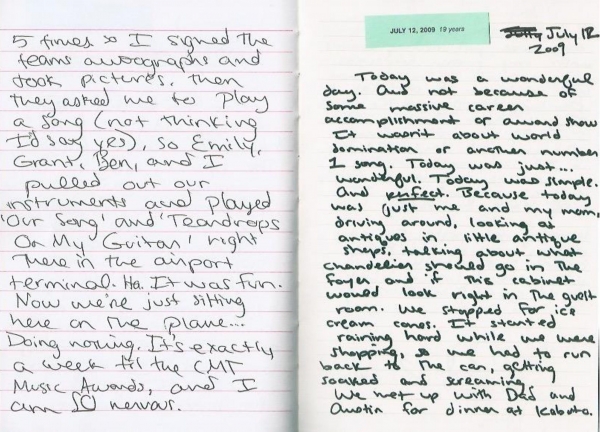 5 times so I signed the
teams autographs and
took pictures. Then
they asked me to play
a song (not thinking
I'd say yes), so Emily,
Grant, Ben, and I
pulled out our
instruments and played
'Our Song' and 'Teardrops
On My Guitar' right
there in the airport
terminal. Ha. It was fun.
Now we're just sitting
here on the plane...
Doing nothing. It's exactly
a week til the CMT
Music Awards, and I
am SO nervous.
JULY 12, 2009 19 years
July 12
2009
Today was a wonderful
day. And not because of
some massive career
accomplishment or award show
It wasn't about world
domination or another number
1 song. Today was just...
wonderful. Today was simple.
And perfect. Because today
was just me and my mom,
driving around, looking at
antiques in little antique
shops, talking about what
chandelier should go in the
foyer and if this cabinet
would look right in the guest
room. We stopped for ice
cream cones. It started
raining hard while we were
shopping, so we had to run
back to the car, getting
soaked and screaming.
We met up with Dad and
Austin for dinner at Kobuto.